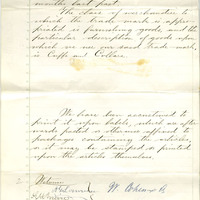 months last past.
The class of merchandise to
which the trade-mark is appro-
priated is furnishing goods, and the
particular description of goods upon
which we use our said trade-mark,
is Cuffs and Collars.
We have been accustomed to
print it upon labels, which are after-
wards pasted or otherwise affixed to
package containing the articles,
or it may be stamped or printed
upon the articles themselves.
Witnesses